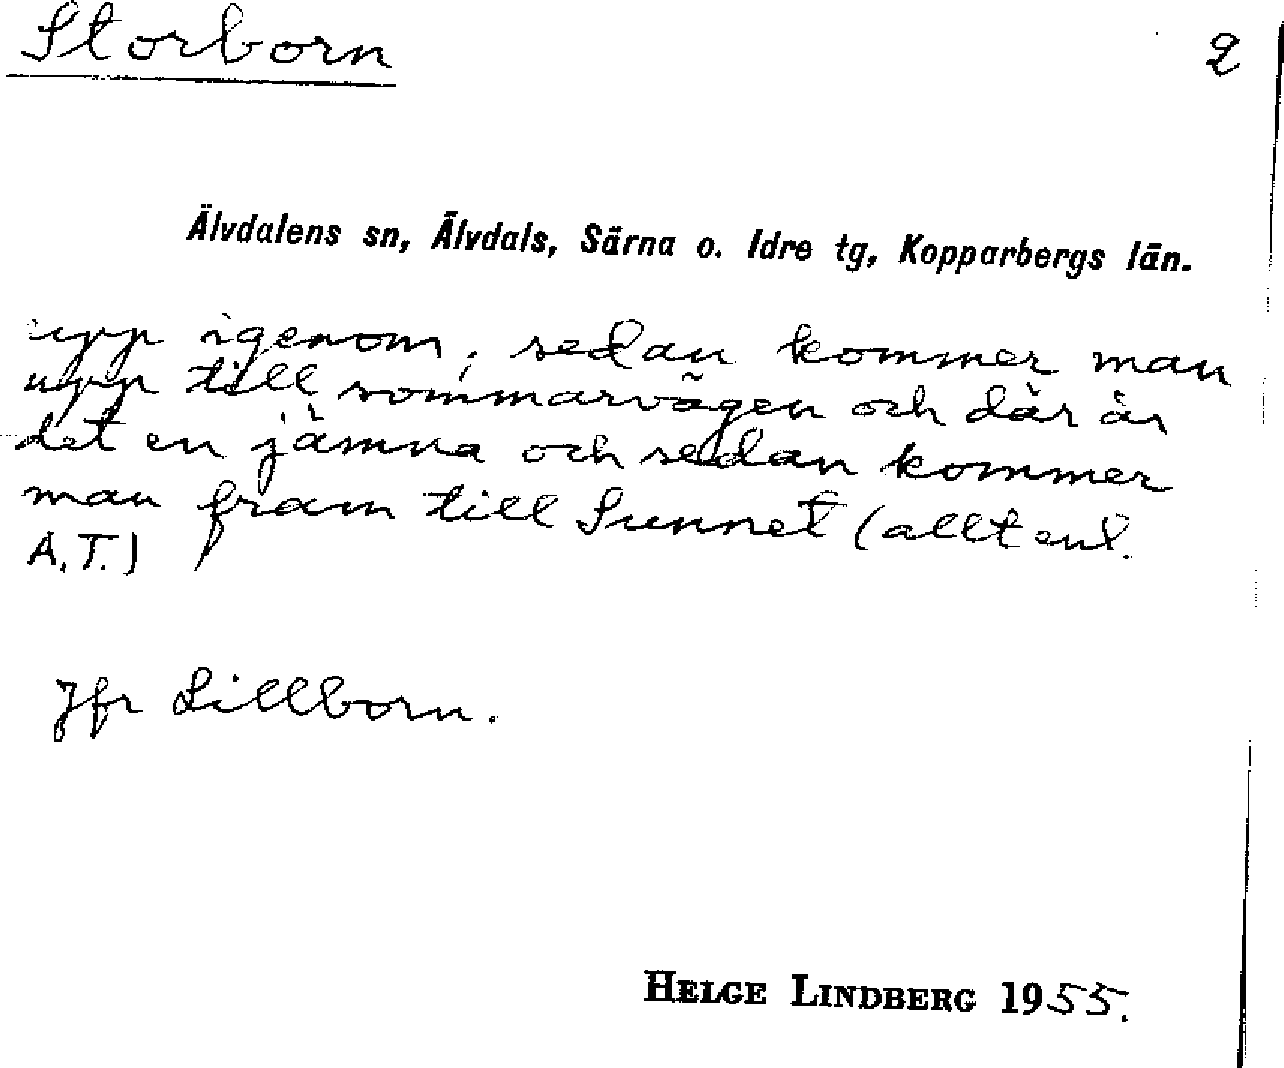 Storborn
2
Älvdalens sn, Älvdals, Särna o. Idre tg, Kopparbergs län.
upp igenom, sedan kommer man
upp till sommarvägen och där är
det en jämna och sedan kommer
man fram till Sunnet (allt enl.
A.T.)
Jfr Lillborn.
HELGE LINDBERG 1955.